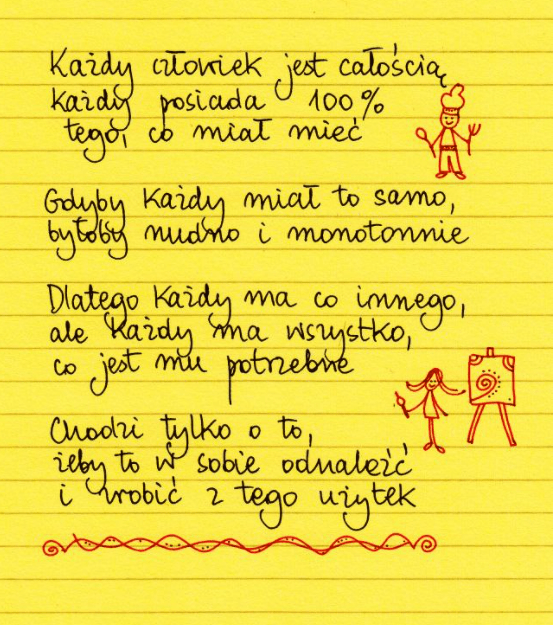 Każdy człowiek jest całością
Każdy posiada 100%
tego, co miał mieć
Gdyby Każdy miał to samo,
byłoby nudno i monotonnie
Dlatego Każdy ma co innego,
ale Każdy ma wszystko,
co jest mu potrzebne
Chodzi tylko o to,
żeby to w sobie odnaleźć
i zrobić z tego użytek